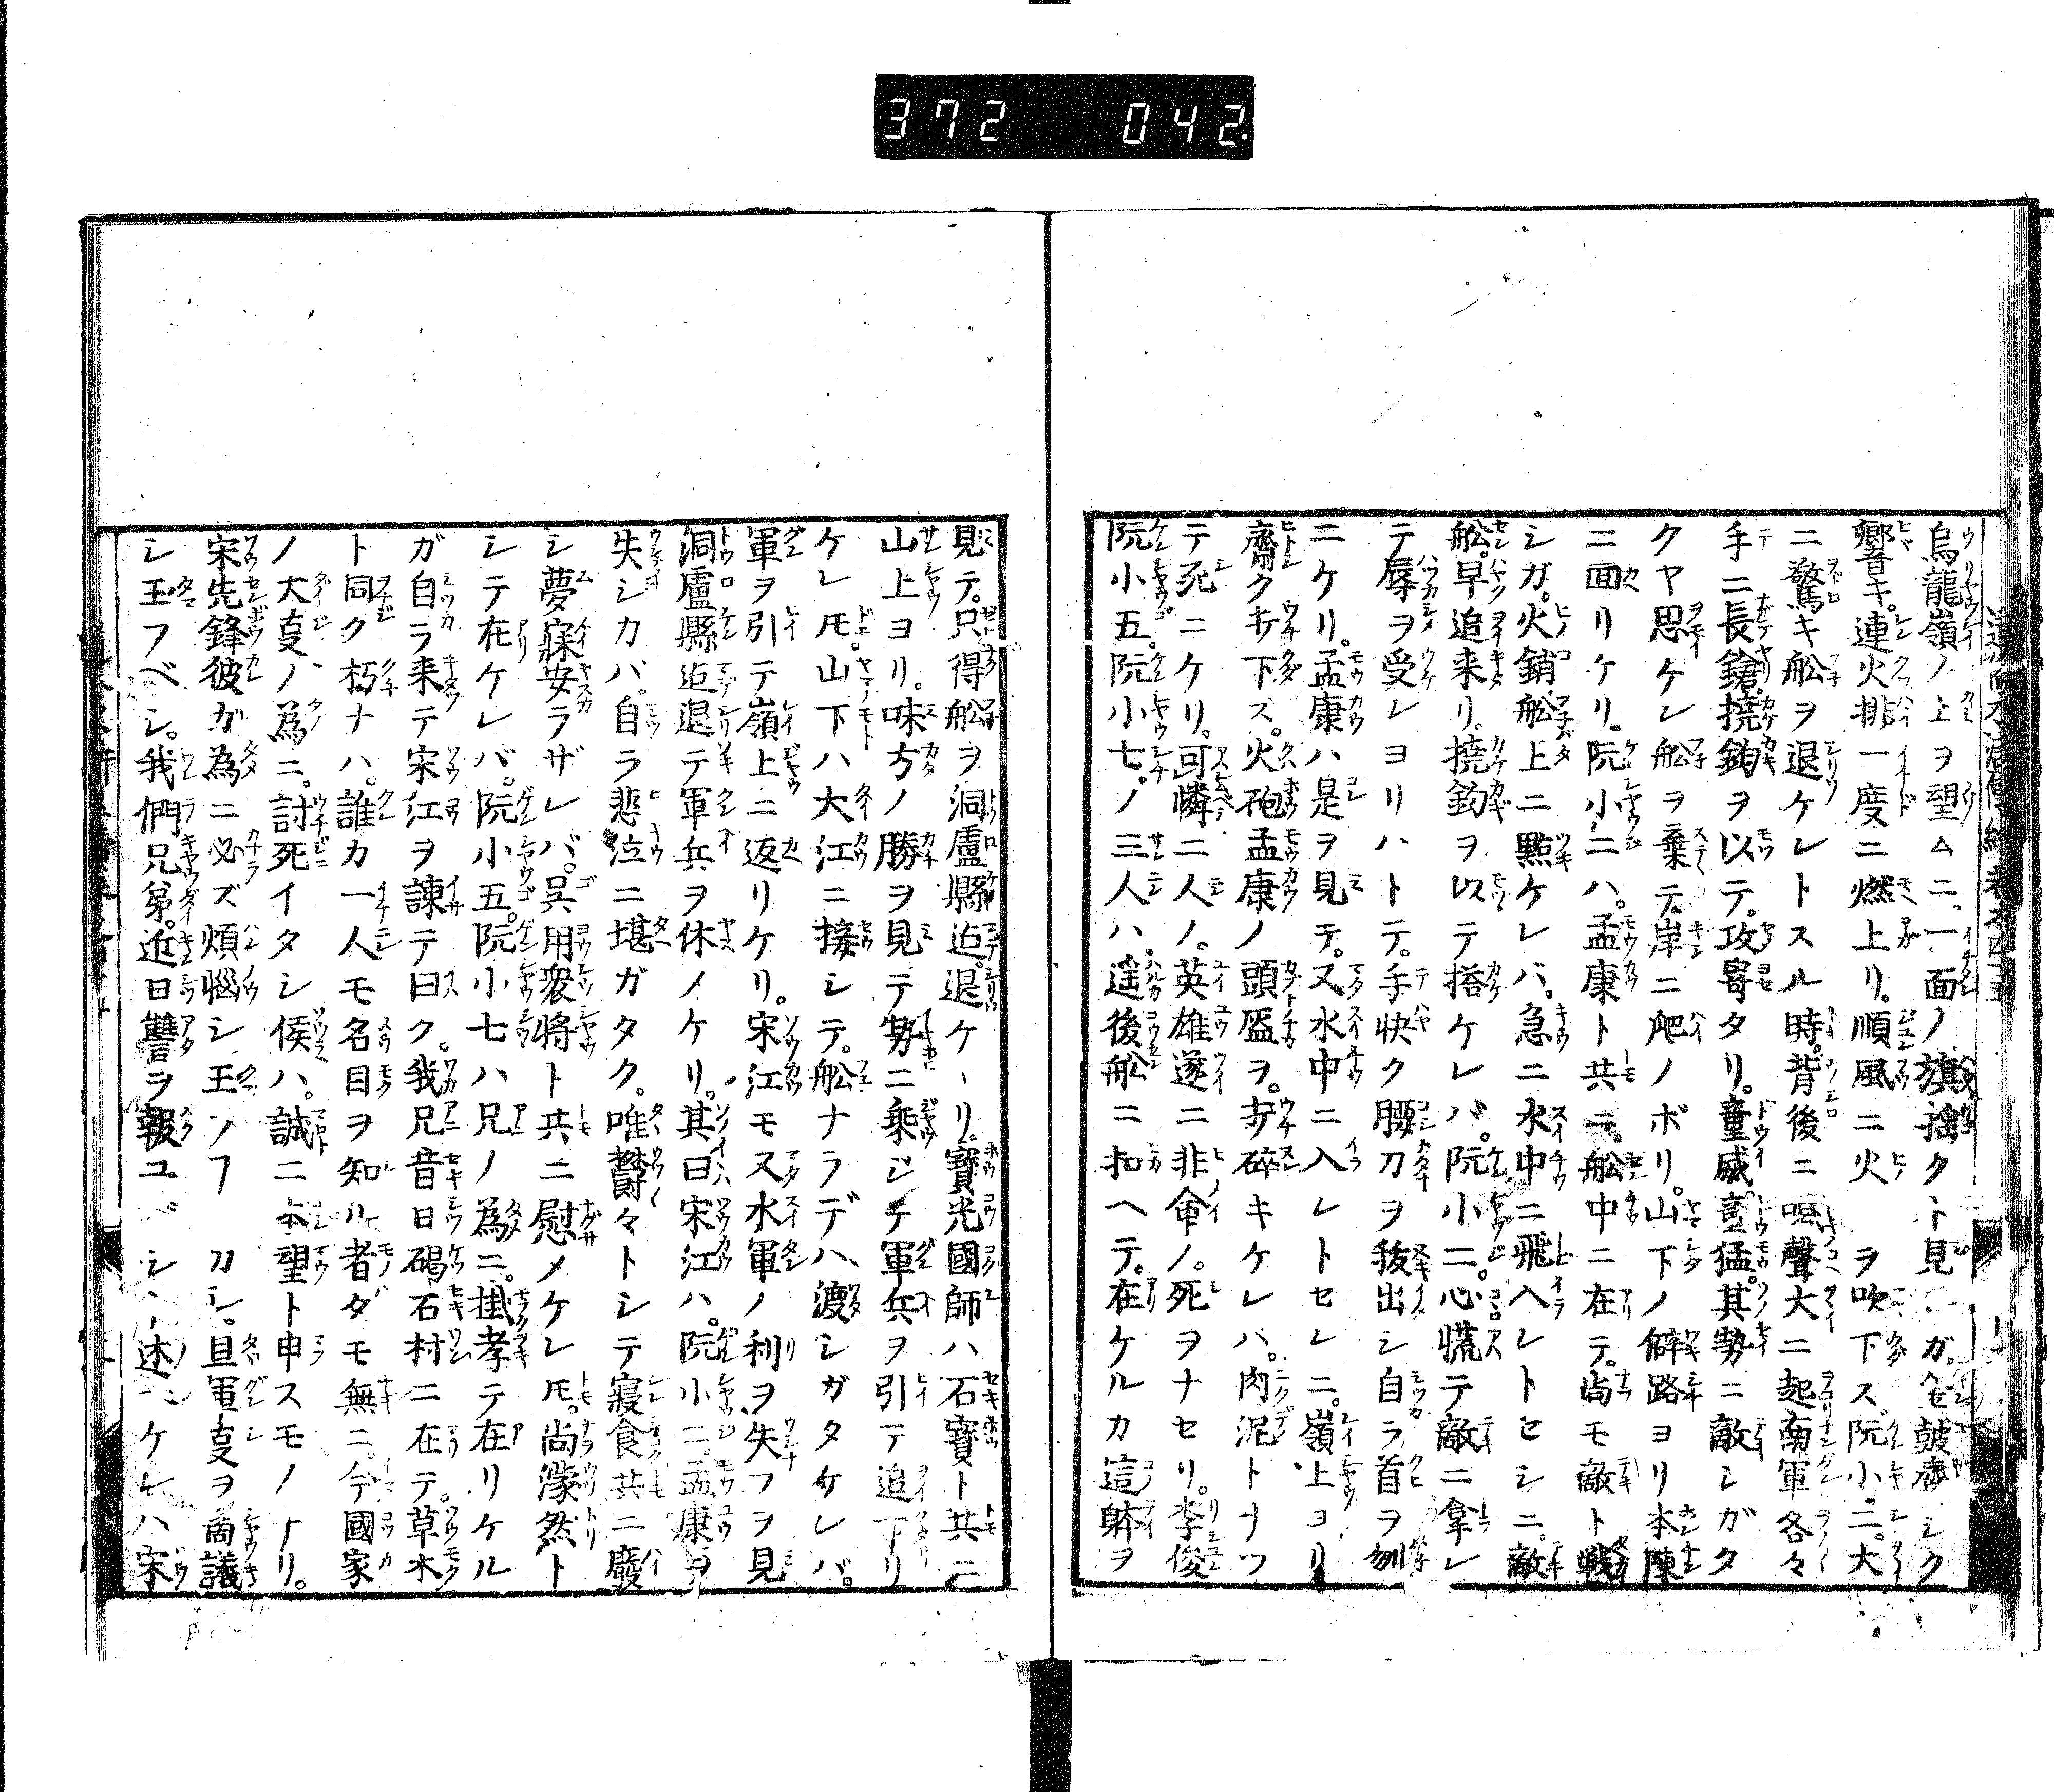 372 042.
烏龍嶺ノ上ヲ望ムニ、一面ノ旗搖クト見ヘガ。金鼓齊シク
響キ。連火排一度ニ燃上リ。順風ニ火ヲ吹下ス。阮小二。大
ニ驚キ舩ヲ退ケントスル時。背後ニ喊聲大ニ起南軍各々
手ニ長鎗。撓鉤ヲ以テ。攻寄タリ。童威。童猛。其勢ニ敵シガタ
クヤ思ケン舩ヲ棄テ岸ニ爬ノボリ。山下ノ僻路ヨリ本陣
ニ囬リケリ。阮小二ハ。孟康ト共ニ舩中ニ在テ。尚モ敵ト戰
シガ。火銷舩上ニ點ケレバ。急ニ水中ニ飛入ントセシニ。敵
舩。早追来リ。撓鈎ヲ以テ搭ケレバ。阮小二。心慌テ敵ニ拿レ
テ辱ヲ受ンヨリハトテ。手快ク腰刀ヲ抜出シ自ラ首ヲ刎
ニケリ。孟康ハ是ヲ見テ。又水中ニ入ントセシニ。嶺上ヨリ
齊ク打下ス。火砲孟康ノ頭盔ヲ。打碎キケレハ。肉泥トナツ
テ死ニケリ。可憐二人ノ。英雄遂ニ非命ノ。死ヲナセリ。李俊
阮小五。阮小七。ノ三人ハ。遥後舩ニ扣ヘテ。在ケルカ這躰ヲ
見テ。只得舩ヲ洞盧縣迠。退ケヽリ。寶光國師ハ石寶ト共ニ
山上ヨリ。味方ノ勝ヲ見テ勢ニ乗ジテ軍兵ヲ引テ追下リ
ケレ𪜈。山下ハ大江ニ接シテ。舩ナラデハ渡シガタケレバ。
軍ヲ引テ嶺上ニ返リケリ。宋江モ又水軍ノ利ヲ失フヲ見
洞盧縣迠退テ軍兵ヲ休メケリ。其日宋江ハ。阮小二。孟康ヲ
失シカバ。自ラ悲泣ニ堪ガタク。唯欝々トシテ寢食共ニ廢
シ夢寐安ラザレバ。呉用衆將ト共ニ慰メケレ𪜈。尚濛然ト
シテ在ケレバ。阮小五。阮小七ハ兄ノ為ニ。掛孝テ在リケル
ガ自ラ来テ宋江ヲ諌テ曰ク。我兄昔日碣石村ニ在テ。草木
ト同ク朽ナハ。誰カ一人モ名目ヲ知ル者ダモ無ニ。今國家
ノ大㕝ノ為ニ。討死イタシ候ハ。誠ニ本望ト申スモノナリ。
宋先鋒彼ガ為ニ必ズ煩惱シ玉フ カシ。且軍㕝ヲ啇議
シ玉フベシ。我們兄第。近日讐ヲ報ユベシト述ヘケレハ宋